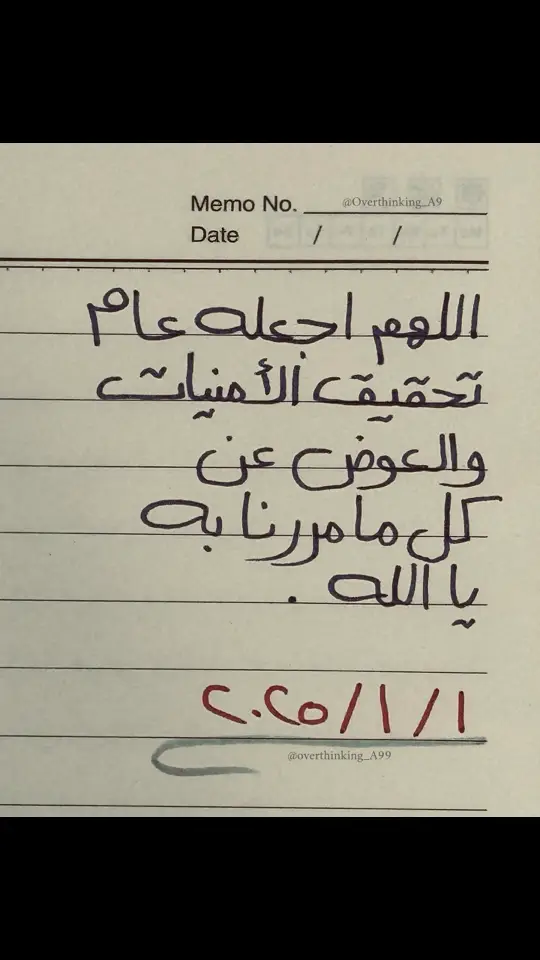 Memo No. @Overthinking_A9
Date / /
اللهم اجعله عام
تحقيق الأمنيات
والعوض عن
كل ما مررنا به
يا الله .
١/١/٢٠٢٥
@overthinking_A99